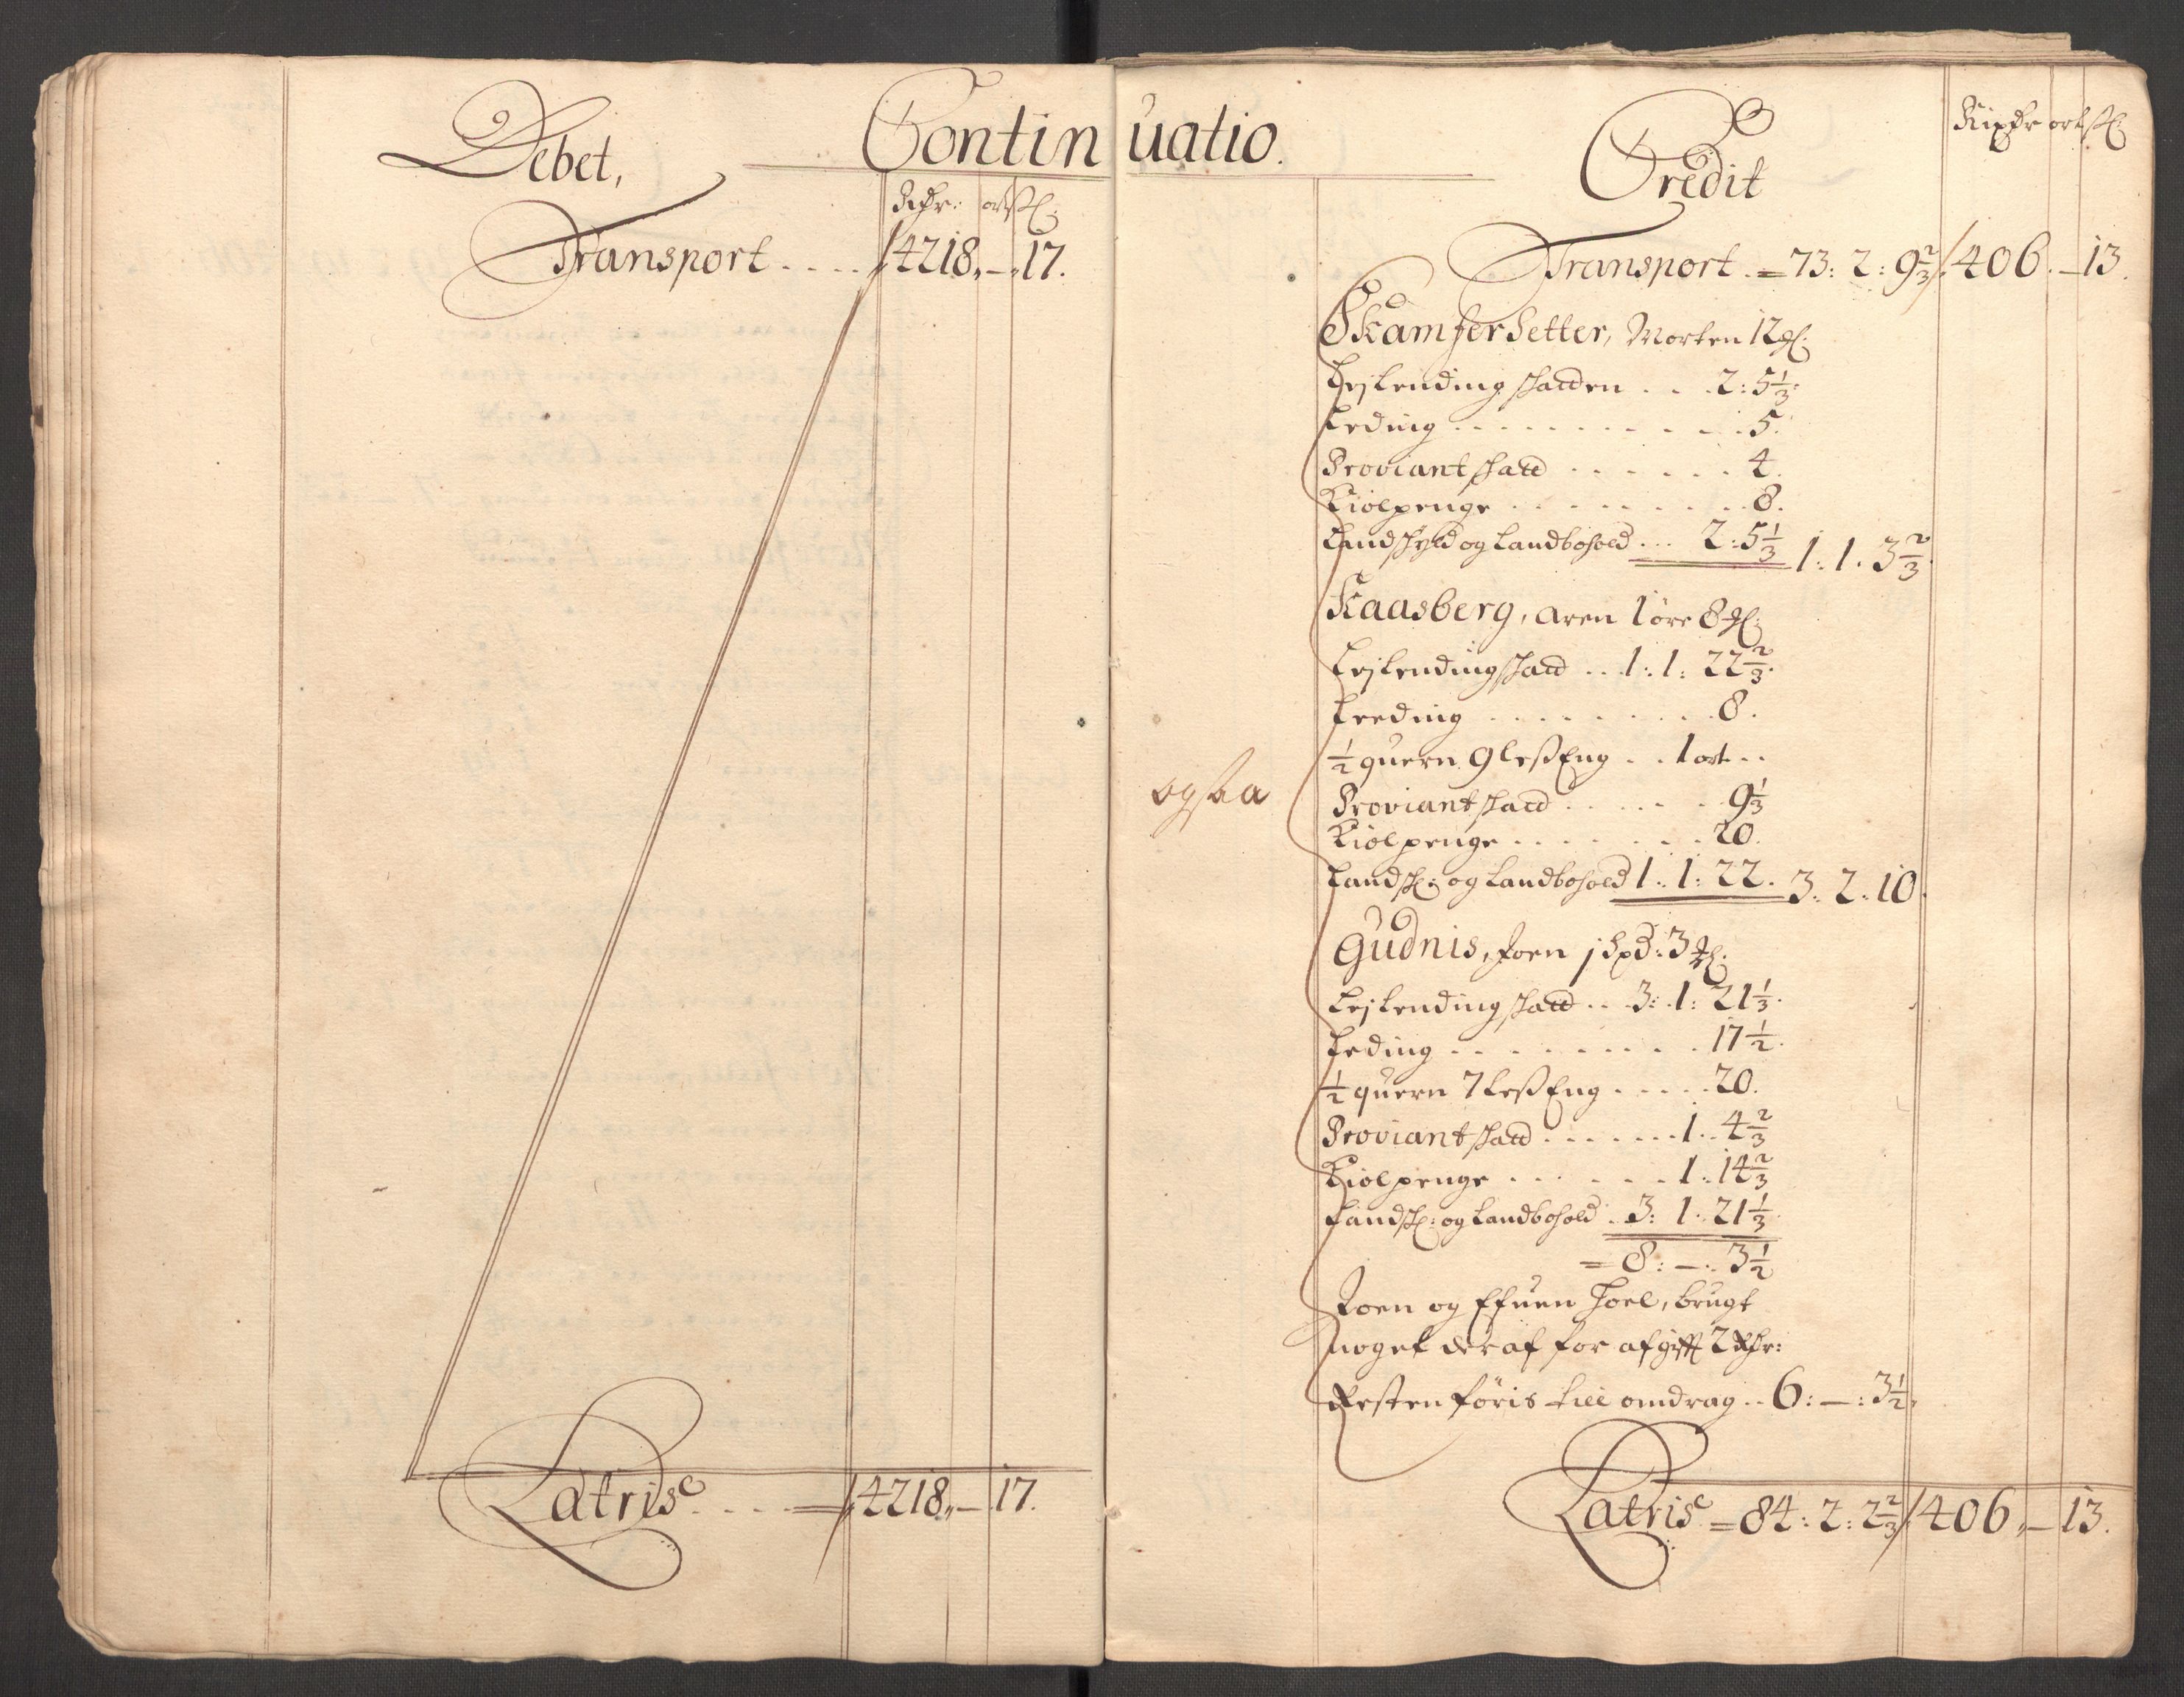 Debet,
Continuatio.
Rdr: ort s:
Transport .... 4218 „ — „ 17.
Latris .... = 4218 „ — 17.
Credit
Rixdr ort s:
Transport . = 73: 2: 9 2/3 / 406. — 13.
Skamfersetter, Morten 12
Leylending skatten . . . 2: 5 1/3:
Leding . . . . . . . . . 5.
Proviant skatt . . . . . 4.
Kiølpenge . . . . . . . 8.
Landskyld og Landbohold ... 2: 5 1/3 1: 1. 3 2/3.
Kaasberg, Aren 1 øre 8
Leylending skatt . . 1: 1: 22 2/3.
Leeding . . . . . . . . 8.
1/2 quern 9 less Eng . . 1 ort . .
ogsaa
Proviant skatt . . . . . 9 1/3
Kiølpenge . . . . . . . 20.
Landsk: og Landbohold 1: 1: 22. 3: 2: 10.
Gudnis, Joen 1 spd: 3
Leylending skatt . . 3: 1: 21 1/3.
Leding . . . . . . . . 17 1/2.
1/2 quern 7 less Eng . . . . 20.
Proviant skatt . . . . . 1: 4 2/3
Kiølpenge . . . . . . 1: 14 2/3
Landsk: og Landbohold . 3: 1: 21 1/3
= 8: —: 3 1/2
Joen og Efuen Joel, brugt
noget deraf for afgifft 2 Rdr:
Resten føris till omdrag . . 6: —: 3 1/2.
Latris = 84: 2: 2 2/3 / 406 „ — 13.